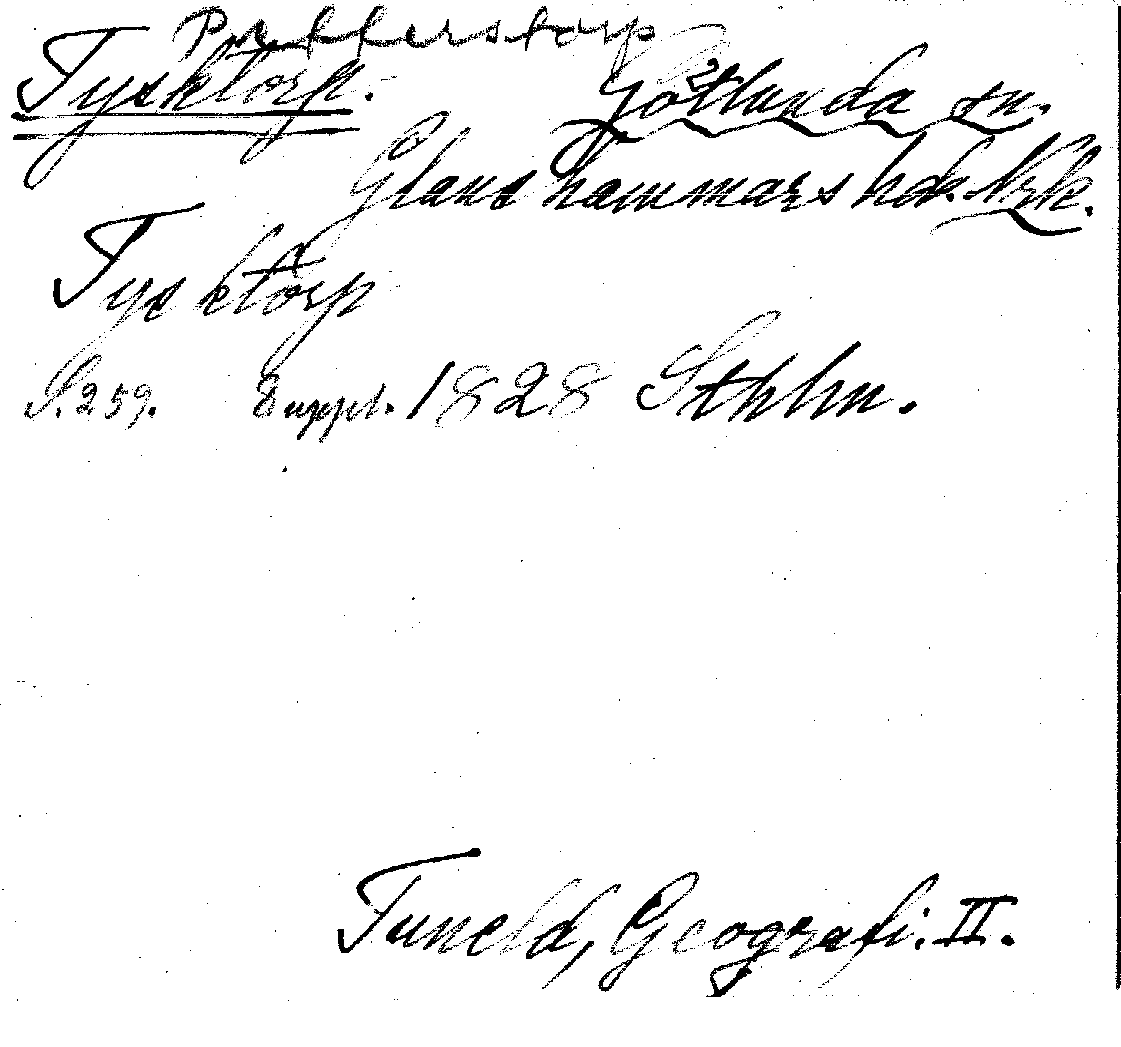 Tysktorp. Götlunda sn.
Glanshammars hd. Nrk.
Tysktorp
S. 259. Suppl. 1828 Sthlm.
Tuneld, Geografi. II.